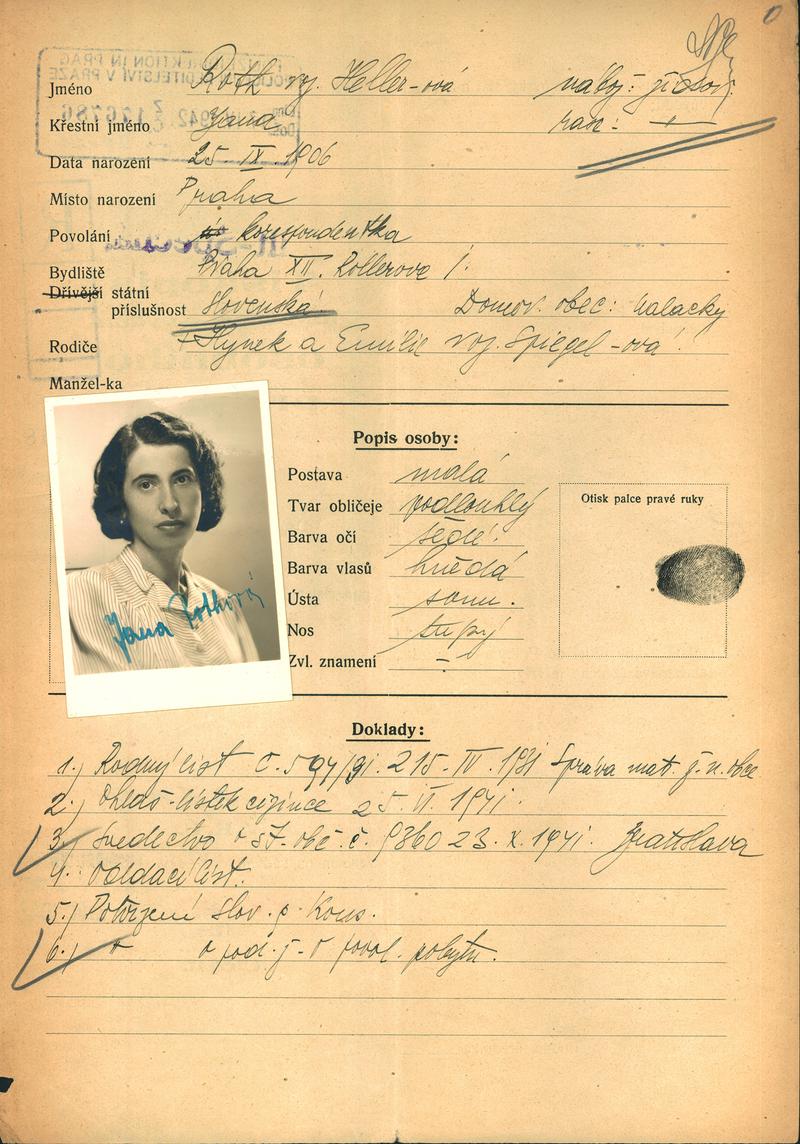 Jméno Roth roz. Heller-ová nábož: židov.
Křestní jméno Jana ras: —
Data narození 25. IX. 1906
Místo narození Praha
Povolání korespondentka
Bydliště Praha XII. Kollerova 1.
Dřívější státní
příslušnost Slovenská. Domov. obec: Malacky
Rodiče Hynek a Emilie roz. Spiegel-ová.
Manžel-ka
Popis osoby:
Postava malá
Tvar obličeje podlouhlý
Barva očí šedé.
Barva vlasů hnědá
Ústa soum.
Nos tupý
Zvl. znamení —
Otisk palce pravé ruky
Jana Rothová
Doklady:
1.) Rodný list č. 594/91. 215. IV. 1931 Správa mat. ž. n. obce
2.) Ohlaš-lístek cizince 25. VI. 1941.
3.) Svedectvo o št. obč. č. 9360 23. X. 1941. Bratislava
4. Oddací list.
5.) Potvrzení Slov. g. Kons.
6.) " o pod. ž-o povol. pobytu.